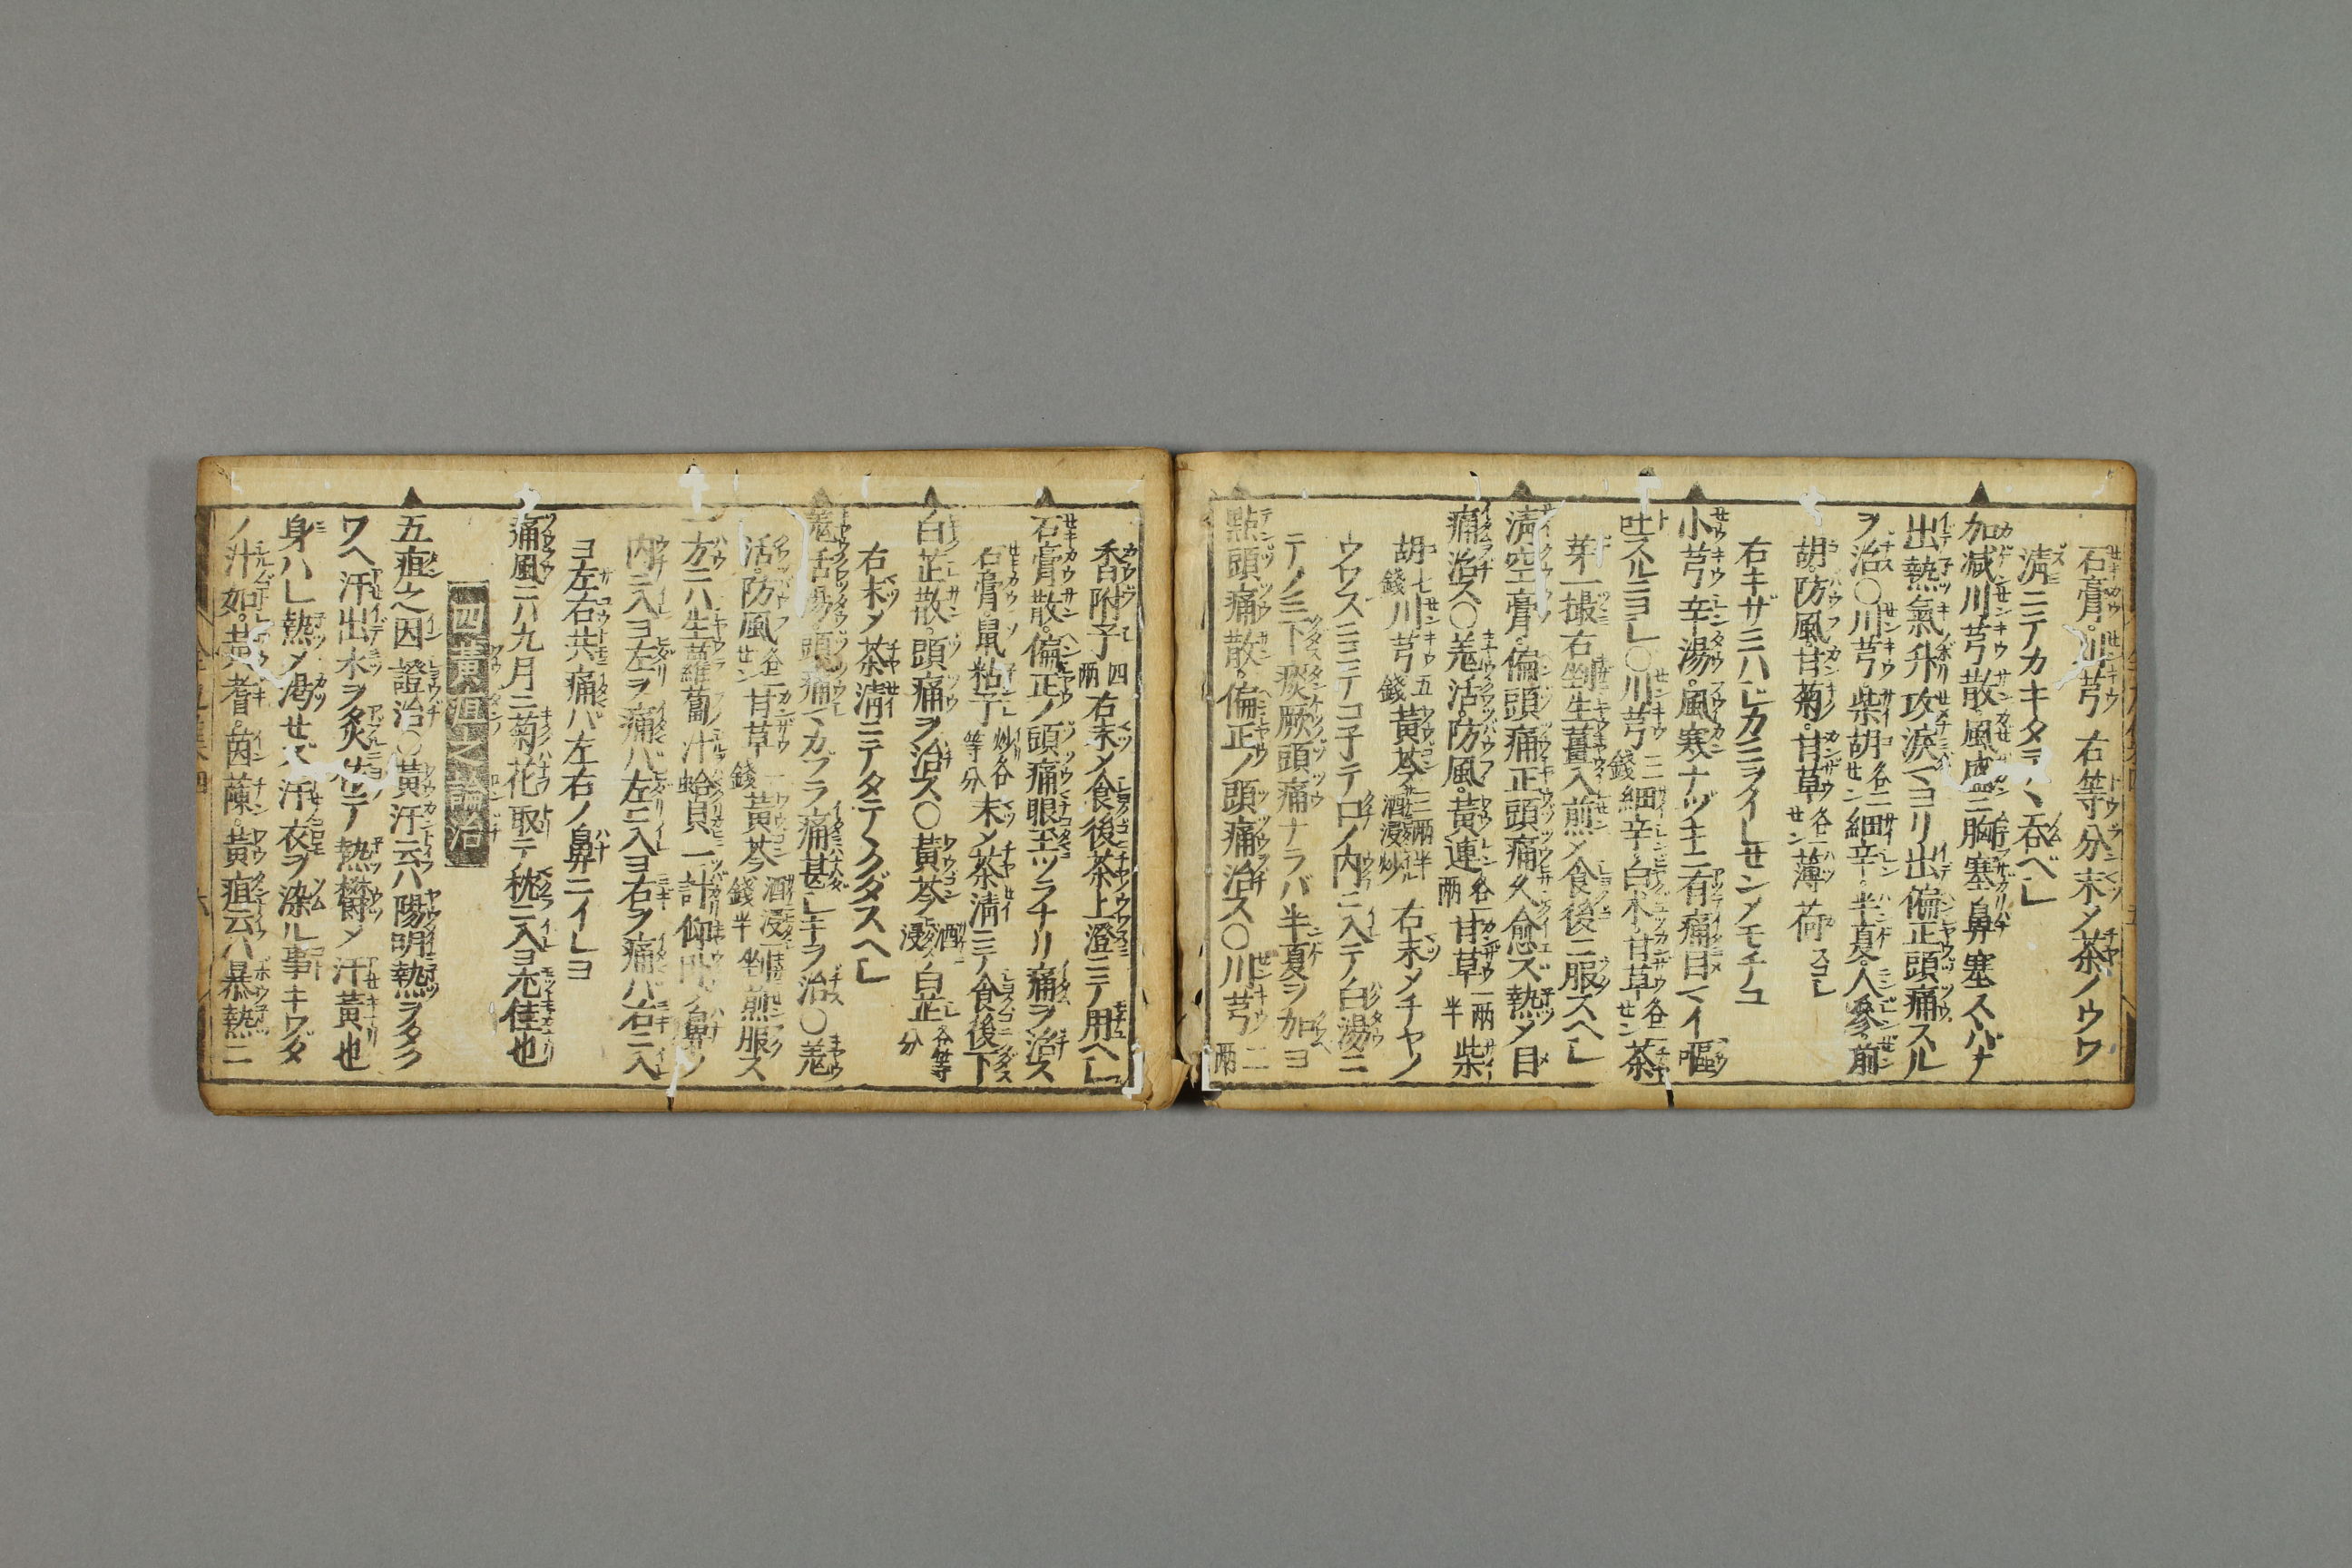 石膏。川芎 右等分末〆茶ノウワ
淸ニテカキタテヽ呑ベシ
加減川芎散。風盛ニ胸塞鼻塞スバナ
出熱氣升攻淚マヨリ出偏正頭痛スル
ヲ治○川芎。柴胡各二せン細辛。半夏。人參。前
胡。防風。甘菊。甘草各一せン薄荷スコシ
右キザミハジカミヲイレせンメモチユ
小芎辛湯。風寒ナヅキニ有痛目マイ嘔
吐スルニヨシ○川芎三錢細辛。白朮。甘草各一せン茶
芽一撮右剉生薑入煎〆食後ニ服スヘシ
淸空膏。偏頭痛正頭痛久愈ズ熱〆目
痛治ス○羗活。防風。黃連各一兩甘草一兩半柴
胡七錢川芎五錢黃芩三兩半酒浸炒右末〆チヤノ
ウワスミニテコ子テ口ノ内ニ入テノ白湯ニ
テノミ下痰厥頭痛ナラバ半夏ヲ加ヨ
點頭痛散。偏正ノ頭痛治ス○川芎二兩
香附子四兩右末〆食後茶上澄ニテ用ヘシ
石膏散。偏正ノ頭痛眼至ツラナリ痛ヲ治ス
石膏。鼠粘子炒各等分末〆茶淸ニテ食後下
白芷散。頭痛ヲ治ス○黃芩酒浸白芷各等分
右末〆茶淸ニテタテヽクダスヘシ
羗活湯。頭痛マカブラ痛甚シキヲ治○羗
活。防風各一せン甘草一錢黃芩酒浸一錢半剉煎服ス
一方ニハ生蘿蔔汁蛤貝一計仰臥〆鼻ノ
内ニ入ヨ左ヲ痛バ左ニ入ヨ右ヲ痛バ右ニ入
ヨ左右共痛バ左右ノ鼻ニイレヨ
痛風ニハ九月ニ菊花取テ枕ニ入ヨ尤佳也
四黃疸之論治
五疸之因 證治○黃汗云ハ陽明熱ヲタク
ワヘ汗出水ヲ テ熱欝〆汗黃也
身ハレ熱〆渴せズ汗衣ヲ染ル事キワダ
ノ汁如。黃耆。茵蔯。黃疸云ハ暴熱ニ